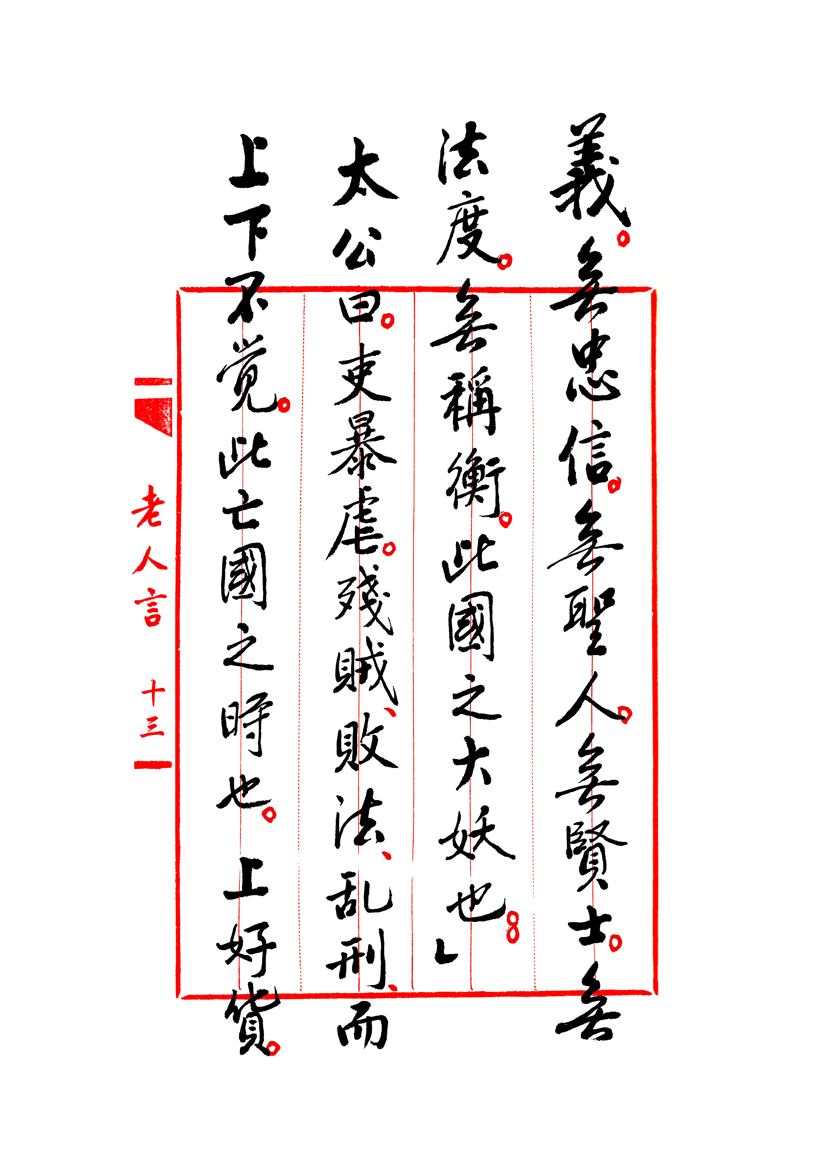 義。無忠信。無聖人。無賢士。無
法度。無稱衡。此國之大妖也。」
太公曰。吏暴虐。殘賊、敗法、乱刑、而
上下不覚。此亡國之時也。上好貨。
老人言 十三